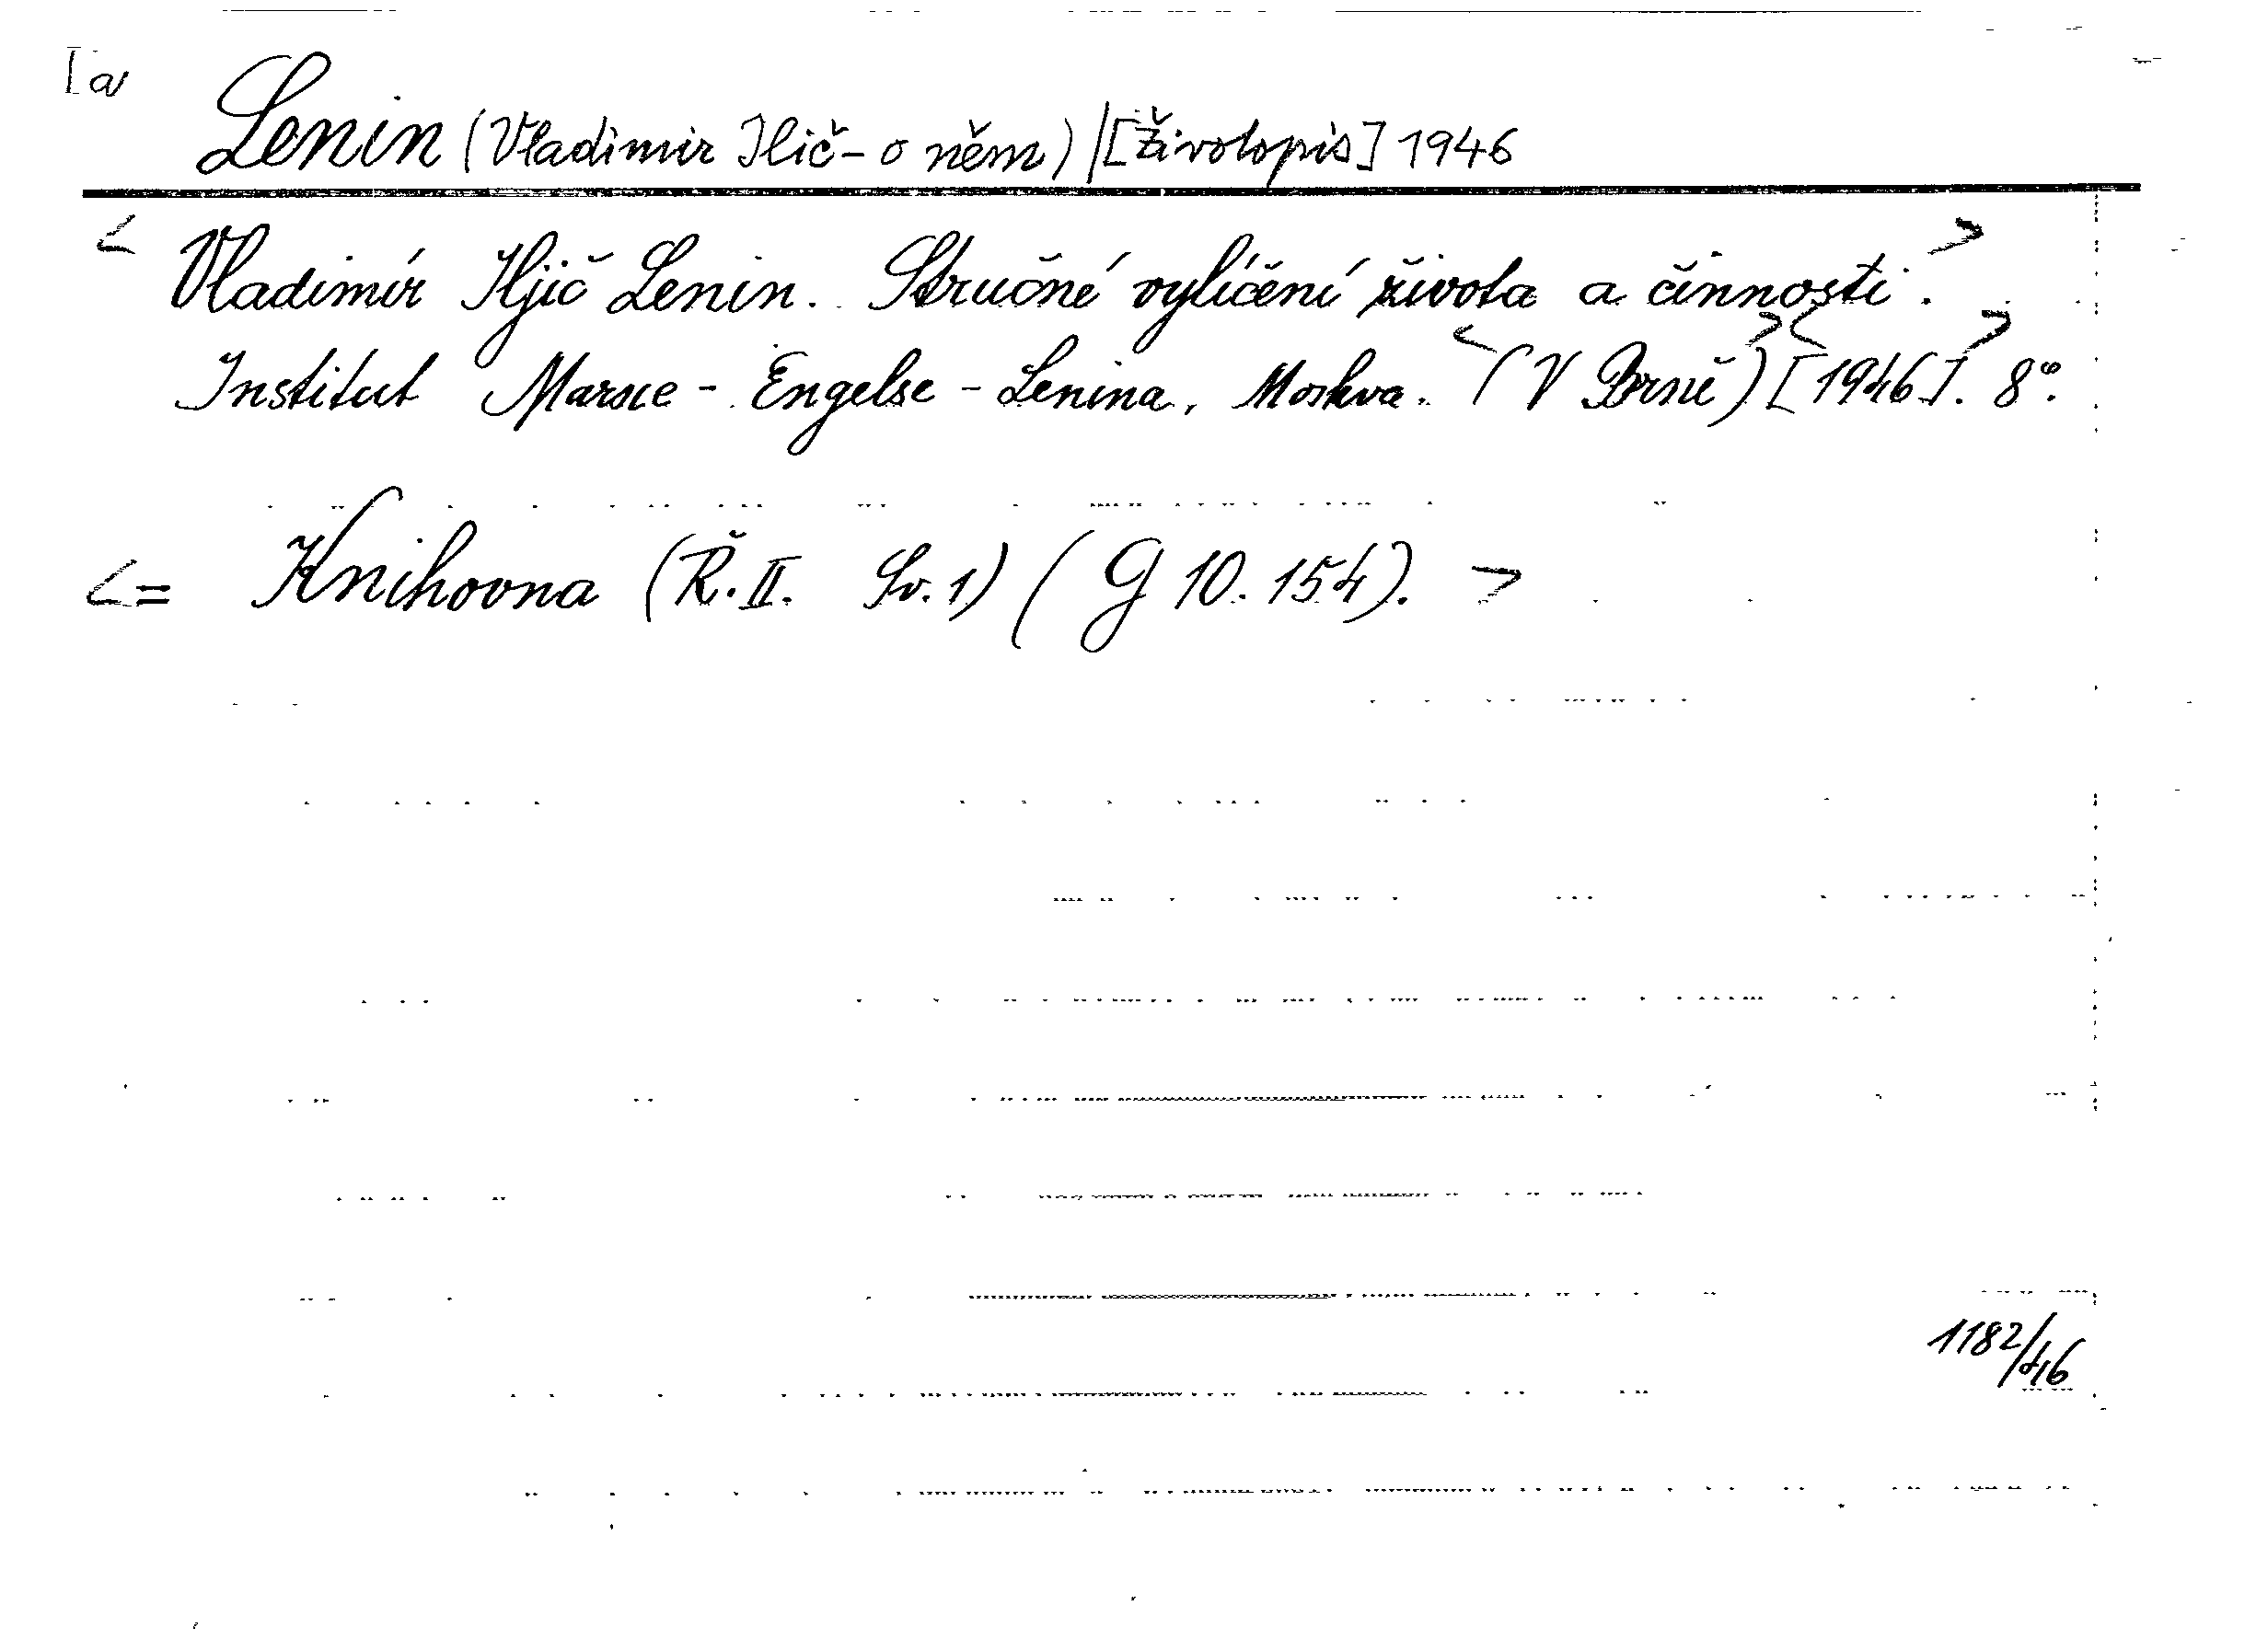 [a
Lenin (Vladimir Ilič - o něm) / [Životopis] 1946
< Vladimír Iljič Lenin. Stručné vylíčení života a činnosti. >
Institut Marxe - Engelse - Lenina, Moskva. <(V Brně)> <[1946]>. 8°.
<= Knihovna (Ř. II. Sv. 1) (G 10.154). >
1182/46